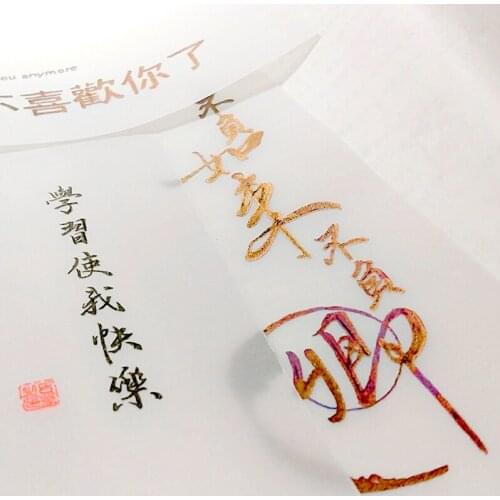 you anymore
不喜歡你了
不負如來不負卿
學習使我快樂